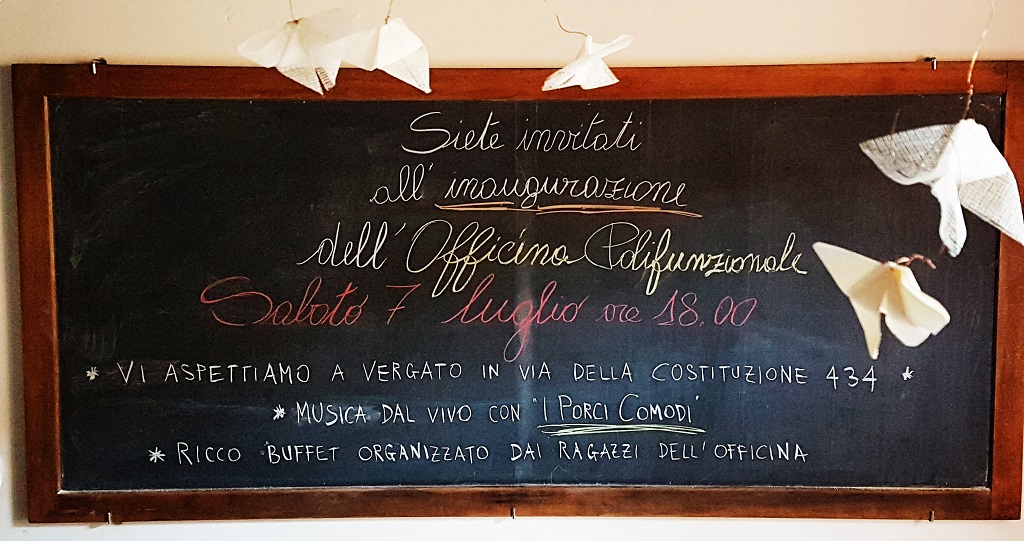 Siete invitati
all' inaugurazione
dell' Officina Polifunzionale
Sabato 7 luglio ore 18.00
* VI ASPETTIAMO A VERGATO IN VIA DELLA COSTITUZIONE 434 *
* MUSICA DAL VIVO CON "I PORCI COMODI"
* RICCO BUFFET ORGANIZZATO DAI RAGAZZI DELL'OFFICINA